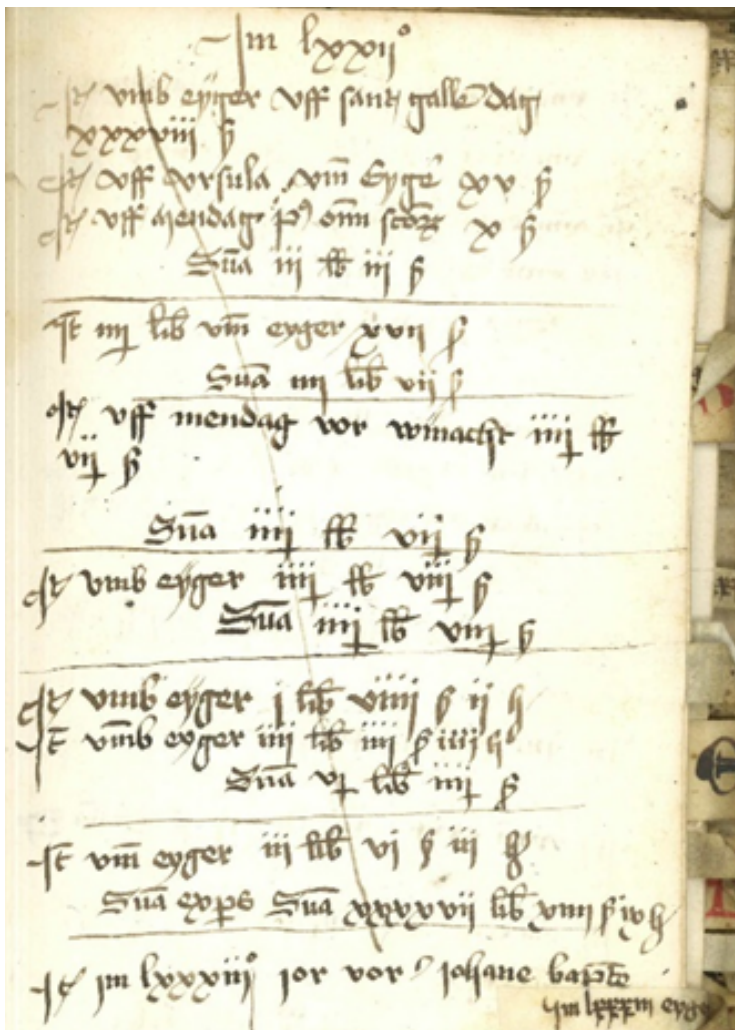 Im lxxii°
It vmb eyger vff sant galle dag
xxxviii ß
It vff vrsula vm Eyge xv ß
It vff mendag p9 omn x ß
Sūa iii lb iii ß
It iiij lib vm eyger xvii ß
Sūa iiij lib vii ß
It vff mendag vor winacht iiij lb
vij ß
Sūa iiij lb vij ß
It vmb eyger iiij lb viij ß
Sūa iiij lb viij ß
It vmb eyger j lib viiij ß ij h
It vmb eyger iiij lib iiij ß iiij h
Sūa vj lib iiij ß
It vm eyger iij lib vj ß iij h
Sūa Sūa xxxxvii lib xviiij ß h
It im lxxxiii° ior vor iohane bapte
im eyge